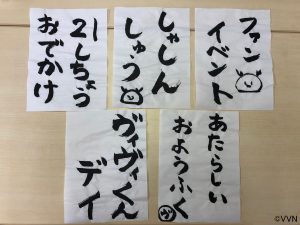 ファン
イベント
しゃしん
しゅう
21しちょう
おでかけ
あたらしい
おようふく
ヴィヴィくん
デイ
©VVN